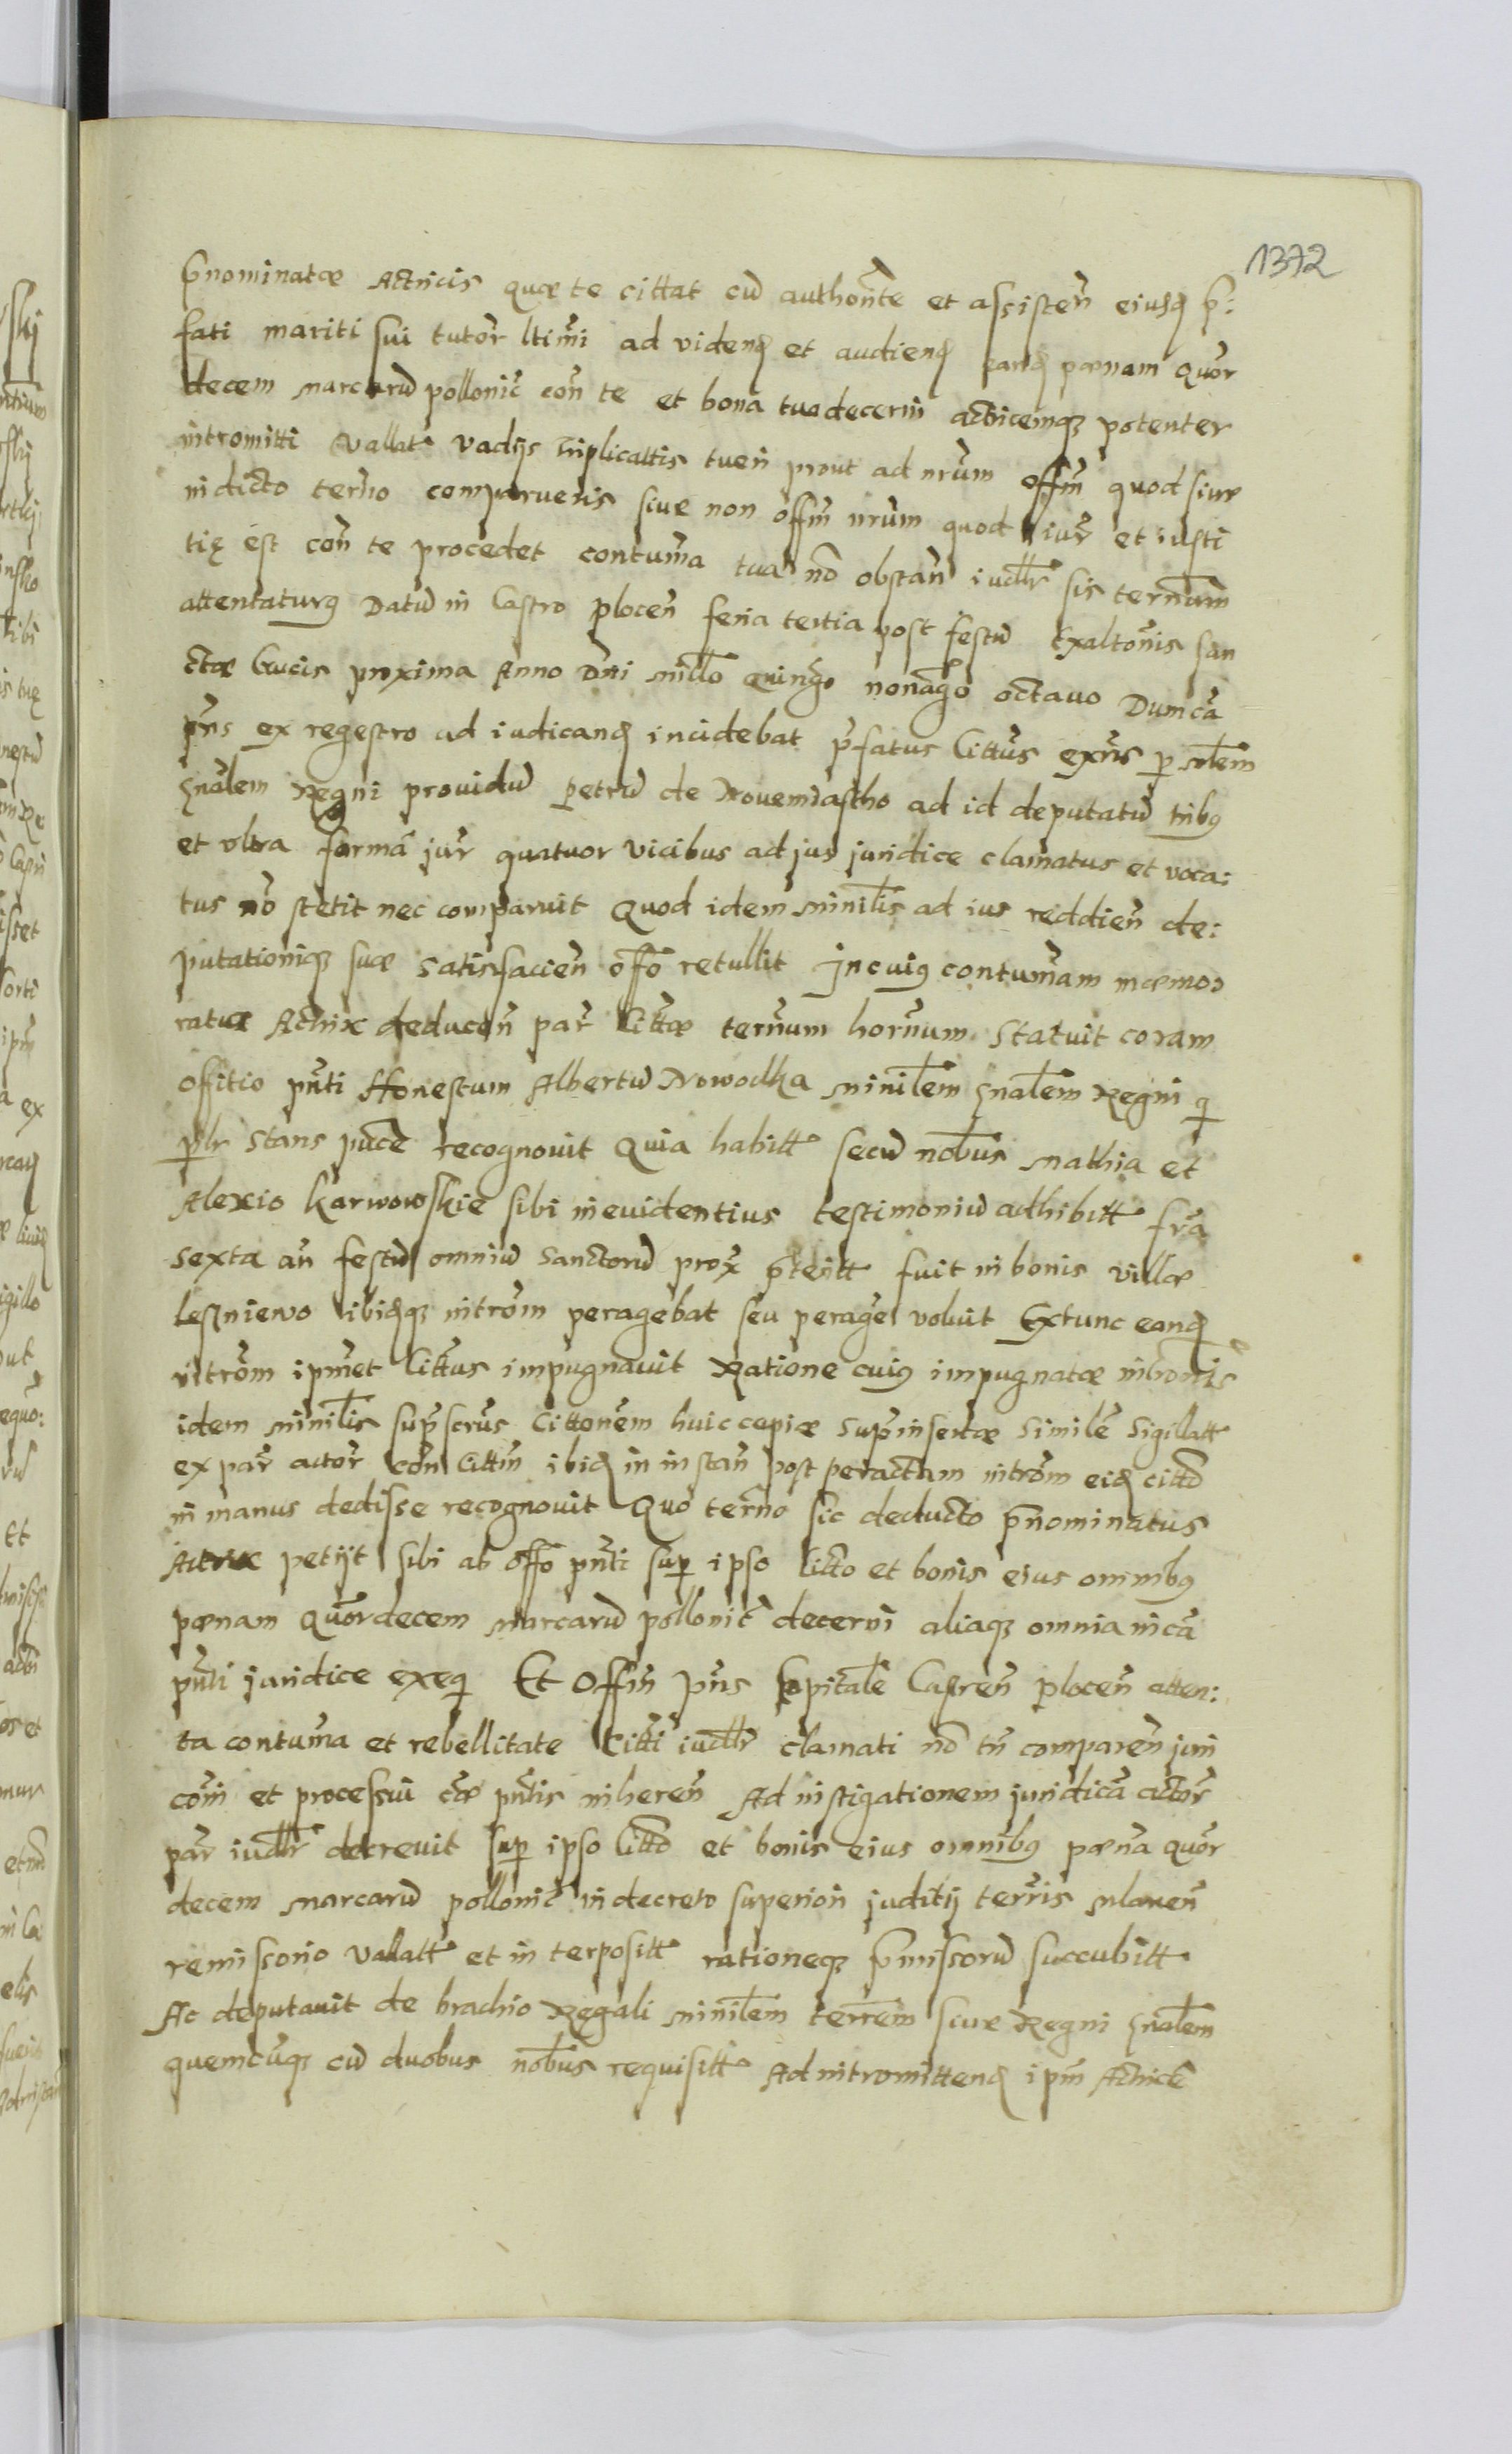 1372
p̃nominatæ Actricis quæ te cittat cũ authoritẽ et assisteñ eiusq p̃:
fati mariti sui tutoꝛ̃ ltimi ad videnď et audienď eanď pænam quor̃
decem marcarũ pollonic̃ coñ te et bona tua decerni actricemqꝫ potenter
intromitti vallat̃ vadijs triplicattis tueñ prout ad nr̃um offm̃ quod siue
in dicto ter̃no comparueris siue non offm̃ nr̃um quod iur̃ et iusti
tię est coñ te procedet contuma͂ tua nõ obstañ iudlr̃ sis term̃um
attentaturꝰ Datũ in Castro plocen̄ feria tertia post festũ Exaltõnis san
ctæ Crucis proxima Anno Dñi millõ quingõ nonagõ octauo Dum cã
pñs ex regestro ad iudicanď incidebat p̃fatus Cittũs exñs p mlem̃
gnãlem Regni prouidũ Petrũ de Nouemiastho ad id deputatũ tribꝰ
et vltra formã jur̃ quatuor vicibus ad jus juridice clamatus et voca:
tus nõ stetit nec comparuit Quod idem minilis̃ ad ius reddieñ de:
putationiqꝫ suæ satisfacieñ offõ retullit In cuiꝰ contumãm mæmo
ratæ Actrix deduceñ par̃ Cittæ term̃um hor̃num statuit coram
Offitio pñti Honestum Albertũ Nowodka minilẽm gnãlem Regni q
plr̃ stans pucẽ recognouit Quia habitt secũ nobus̃ Mathia et
Alexio Karwowskie sibi in euidentius testimoniũ adhibitt fr̃a
sexta añ festũ omniũ Sanctorũ prox̃ p̃teritt fuit in bonis villæ
Lesniewo ibidqꝫ intrõm peragebat seu perager̃ voluit Extunc eanď
intrõm ipm̃et Cittus impugnauit Ratione cuiꝰ impugnatæ in bonis
idem minilis̃ sup̃scr̃us Cittonẽm huic copiæ sup̃insertæ similẽ sigillatt
ex par̃ actor̃ coñ Citti̇m̃ ibiď in instañ post peractam intrõm eiď cittõ
in manus dedisse recognouit Quo ter̃no sic deducto p̃nominatus
Actrix petijt sibi ab offõ pñti sup ipso Citto et bonis eius omnibꝰ
pænam quor̃decem marcarũ pollonic̃ decerni aliaqꝫ omnia in cã
pñti juridice exeq Et Offm̃ pñs Capitalẽ Castreñ plocen̄ atten:
ta contuma͂ et rebellitate Citti iudlr̃ clamati nõ tñ compareñ juri
com̃i et processui cæ̃ pñtis inhereñ Ad instigationem juridicã actor̃
par̃ iudlr̃ decreuit sup ipso Cittõ et bonis eius omnibꝰ pænã quor̃
decem marcarũ pollonic̃ in decreto superiori juditij ter̃ris mlaueñ
remissorio vallatt et in terpositt rationeqꝫ p̃missorũ succubitt
Ac deputauit de brachio Regali minilẽm ter̃rem siue Regni gnãlem
quemcũqꝫ cũ duobus nobus̃ requisitt Ad intromittenď ipm̃ Actricẽ